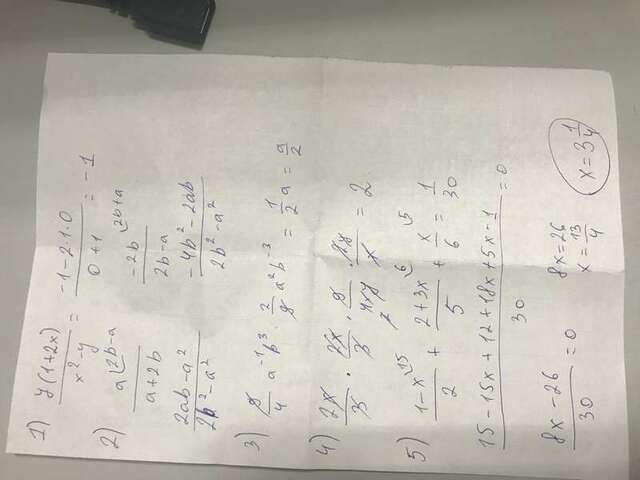 1) y(1+2x)/(x²-y) = (-1-2·1·0)/(0+1) = -1
2) a/(a+2b) ⌞2b-a   -2b/(2b-a) ⌞2b+a
(2ab-a²)/(2b²-a²)   (-4b²-2ab)/(2b²-a²)
3) 9/4 a⁻¹b³ · 2/9 a²b⁻³ = 1/2 a = a/2
4) 2x/3 · 2x/3 · 9/4xy · 2y/x = 2
5) (1-x)/2 ⌞15 + (2+3x)/5 ⌞6 + x/6 ⌞5 = 1/30
(15-15x+12+18x+5x-1)/30 = 0
(8x-26)/30 = 0   8x=26
x = 13/4   x = 3 1/4